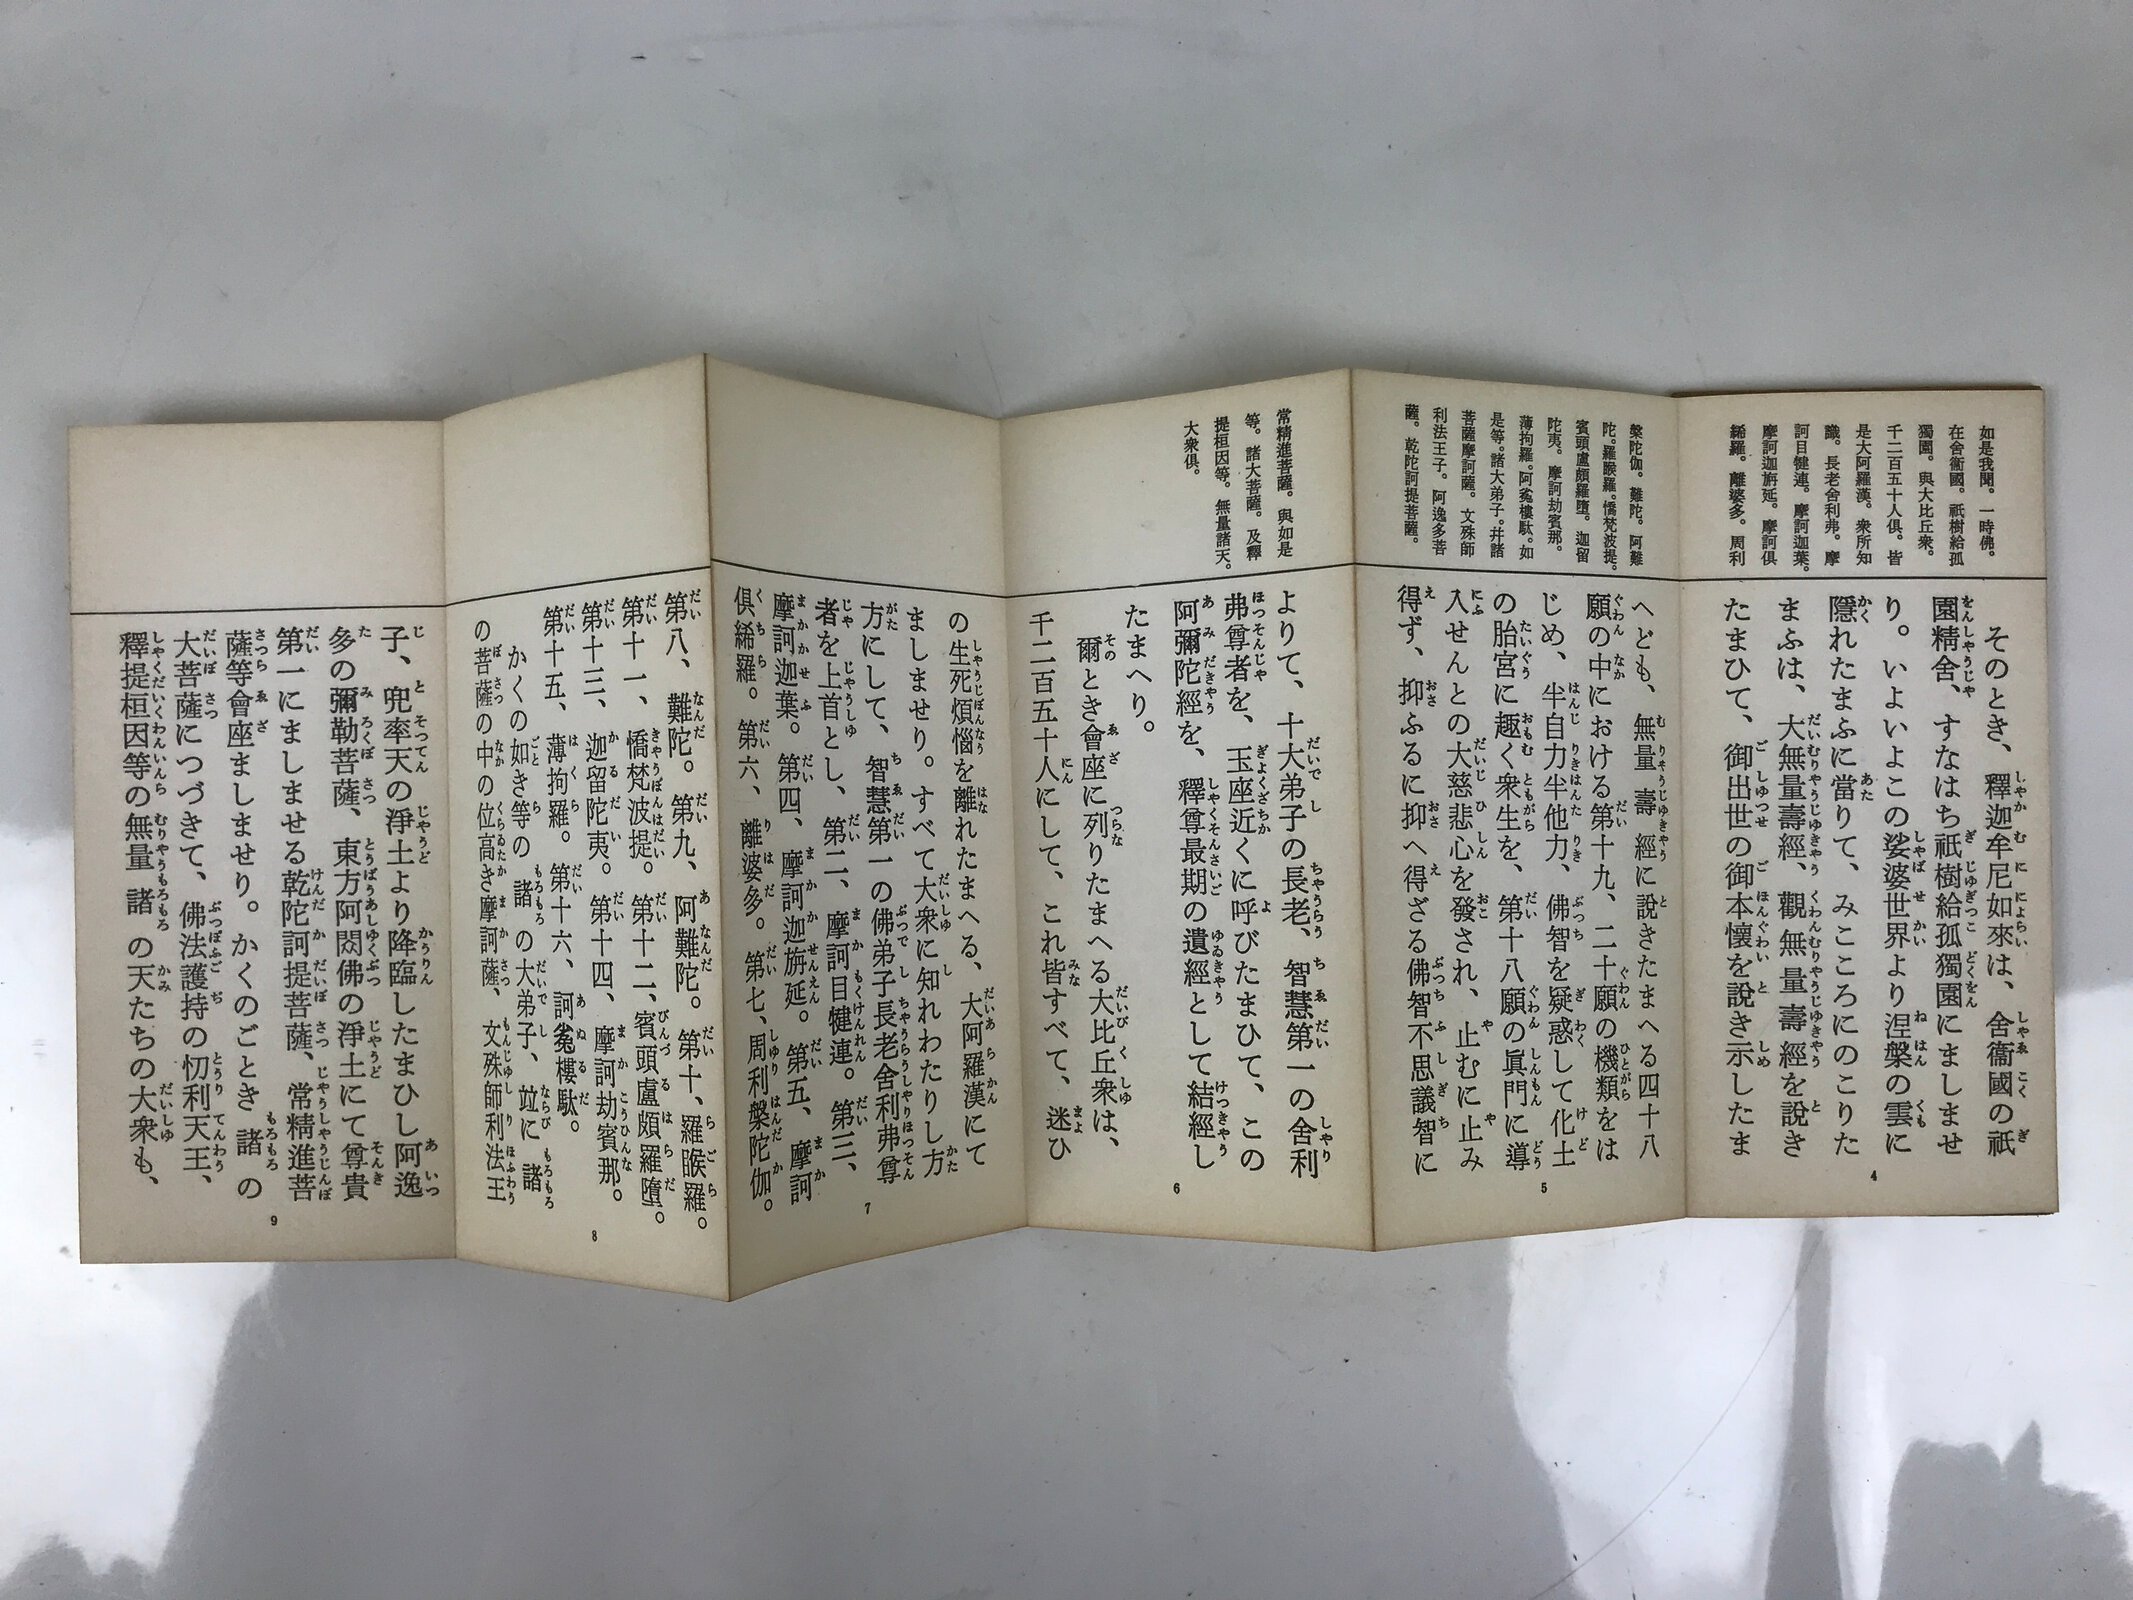 如是我聞。一時佛。
在舍衞國。祇樹給孤
獨園。與大比丘衆。
千二百五十人俱。皆
是大阿羅漢。衆所知
識。長老舍利弗。摩
訶目犍連。摩訶迦葉。
摩訶迦旃延。摩訶俱
絺羅。離婆多。周利
そのとき、釋迦牟尼如來は、舍衞國の祇
園精舍、すなはち祇樹給孤獨園にましませ
り。いよいよこの娑婆世界より涅槃の雲に
隱れたまふに當りて、みこころにのこりた
まふは、大無量壽經、觀無量壽經を說き
たまひて、御出世の御本懷を說き示したま
4
槃陀伽。難陀。阿難
陀。羅睺羅。憍梵波提。
賓頭盧頗羅墮。迦留
陀夷。摩訶劫賓那。
薄拘羅。阿㝹樓馱。如
是等。諸大弟子。幷諸
菩薩摩訶薩。文殊師
利法王子。阿逸多菩
薩。乾陀訶提菩薩。
へども、無量壽經に說きたまへる四十八
願の中における第十九、二十願の機類をは
じめ、半自力半他力、佛智を疑惑して化土
の胎宮に趣く衆生を、第十八願の眞門に導
入せんとの大慈悲心を發され、止むに止み
得ず、抑ふるに抑へ得ざる佛智不思議智に
5
常精進菩薩。與如是
等。諸大菩薩。及釋
提桓因等。無量諸天。
大衆俱。
よりて、十大弟子の長老、智慧第一の舍利
弗尊者を、玉座近くに呼びたまひて、この
阿彌陀經を、釋尊最期の遺經として結經し
たまへり。
爾とき會座に列りたまへる大比丘衆は、
千二百五十人にして、これ皆すべて、迷ひ
6
の生死煩惱を離れたまへる、大阿羅漢にて
ましませり。すべて大衆に知れわたりし方
方にして、智慧第一の佛弟子長老舍利弗尊
者を上首とし、第二、摩訶目犍連。第三、
摩訶迦葉。第四、摩訶迦旃延。第五、摩訶
俱絺羅。第六、離婆多。第七、周利槃陀伽。
7
第八、難陀。第九、阿難陀。第十、羅睺羅。
第十一、憍梵波提。第十二、賓頭盧頗羅墮。
第十三、迦留陀夷。第十四、摩訶劫賓那。
第十五、薄拘羅。第十六、訶㝹樓馱。
かくの如き等の諸の大弟子、竝に諸
の菩薩の中の位高き摩訶薩、文殊師利法王
8
子、兜率天の淨土より降臨したまひし阿逸
多の彌勒菩薩、東方阿閦佛の淨土にて尊貴
第一にましませる乾陀訶提菩薩、常精進菩
薩等會座ましませり。かくのごとき諸の
大菩薩につづきて、佛法護持の忉利天王、
釋提桓因等の無量諸の天たちの大衆も、
9